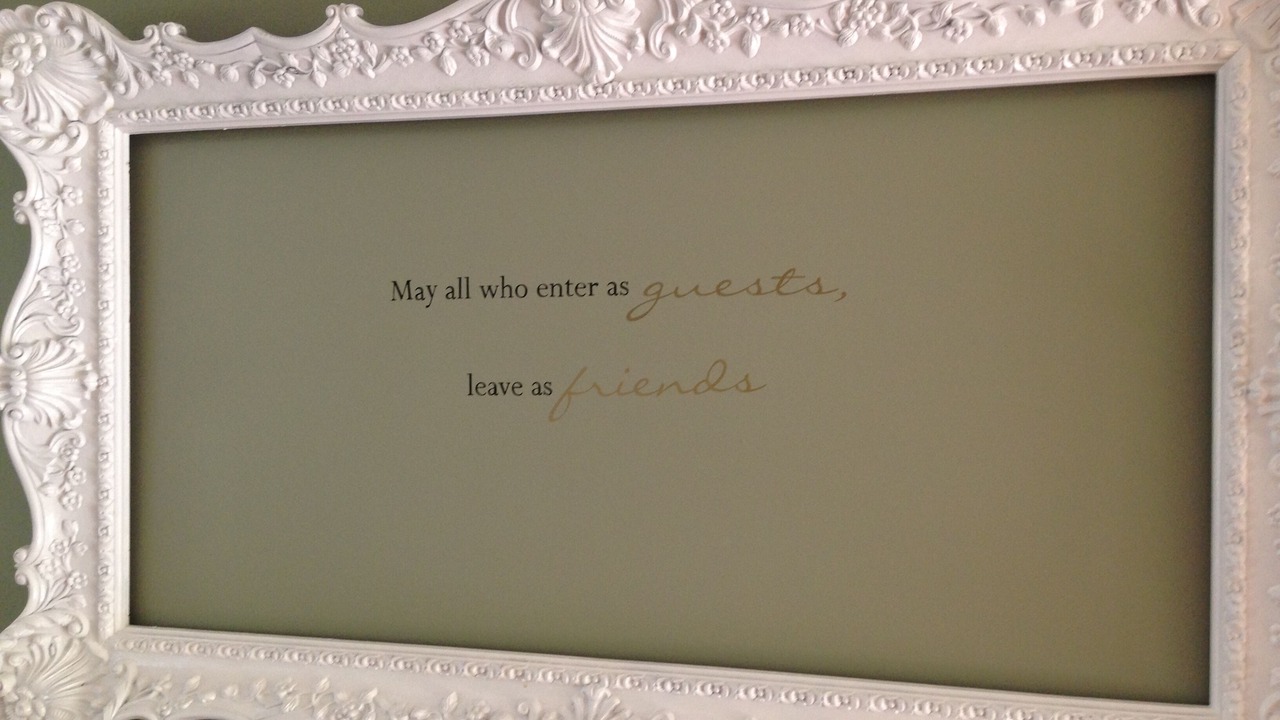 May all who enter as guests,
leave as friends